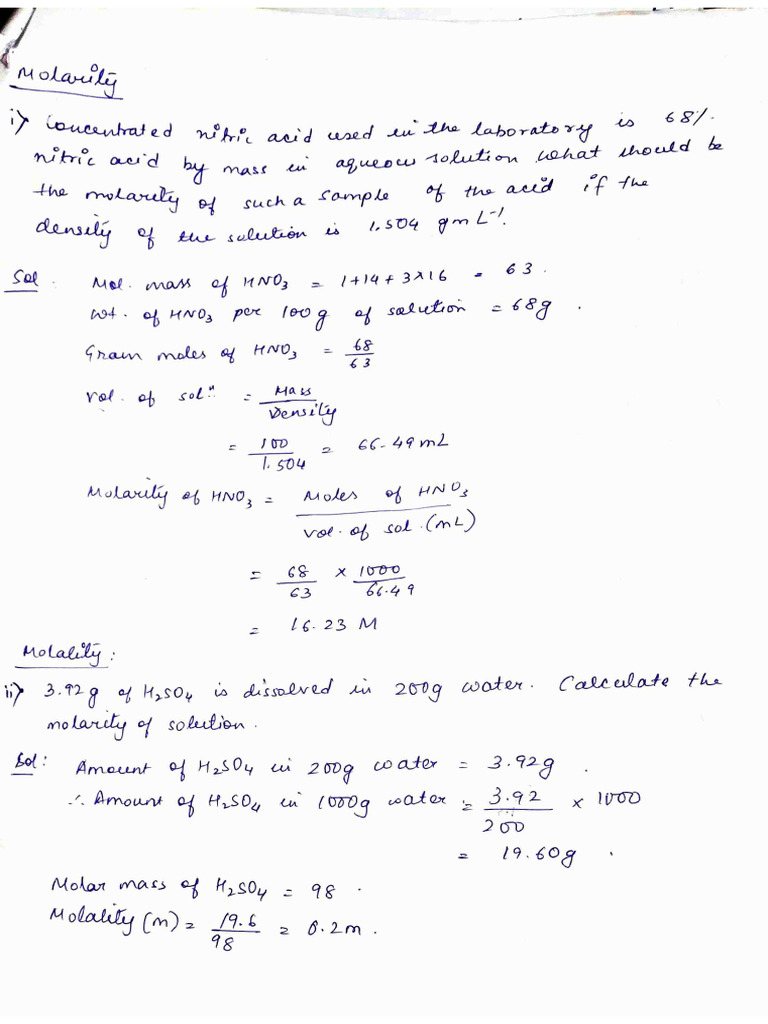 Molarity
i) Concentrated nitric acid used in the laboratory is 68%
nitric acid by mass in aqueous solution what should be
the molarity of such a sample of the acid if the
density of the solution is 1.504 gmL⁻¹.
Sol. Mol. mass of HNO₃ = 1+14+3×16 = 63.
wt. of HNO₃ per 100g of solution = 68g.
Gram moles of HNO₃ = 68/63
Vol. of solⁿ = Mass/Density
= 100/1.504 = 66.49mL
Molarity of HNO₃ = Moles of HNO₃/Vol. of sol. (mL)
= 68/63 × 1000/66.49
= 16.23 M
Molality:
ii) 3.92g of H₂SO₄ is dissolved in 200g water. Calculate the
molarity of solution.
Sol: Amount of H₂SO₄ in 200g water = 3.92g.
∴ Amount of H₂SO₄ in 1000g water = 3.92/200 × 1000
= 19.60g.
Molar mass of H₂SO₄ = 98.
Molality (m) = 19.6/98 = 0.2m.